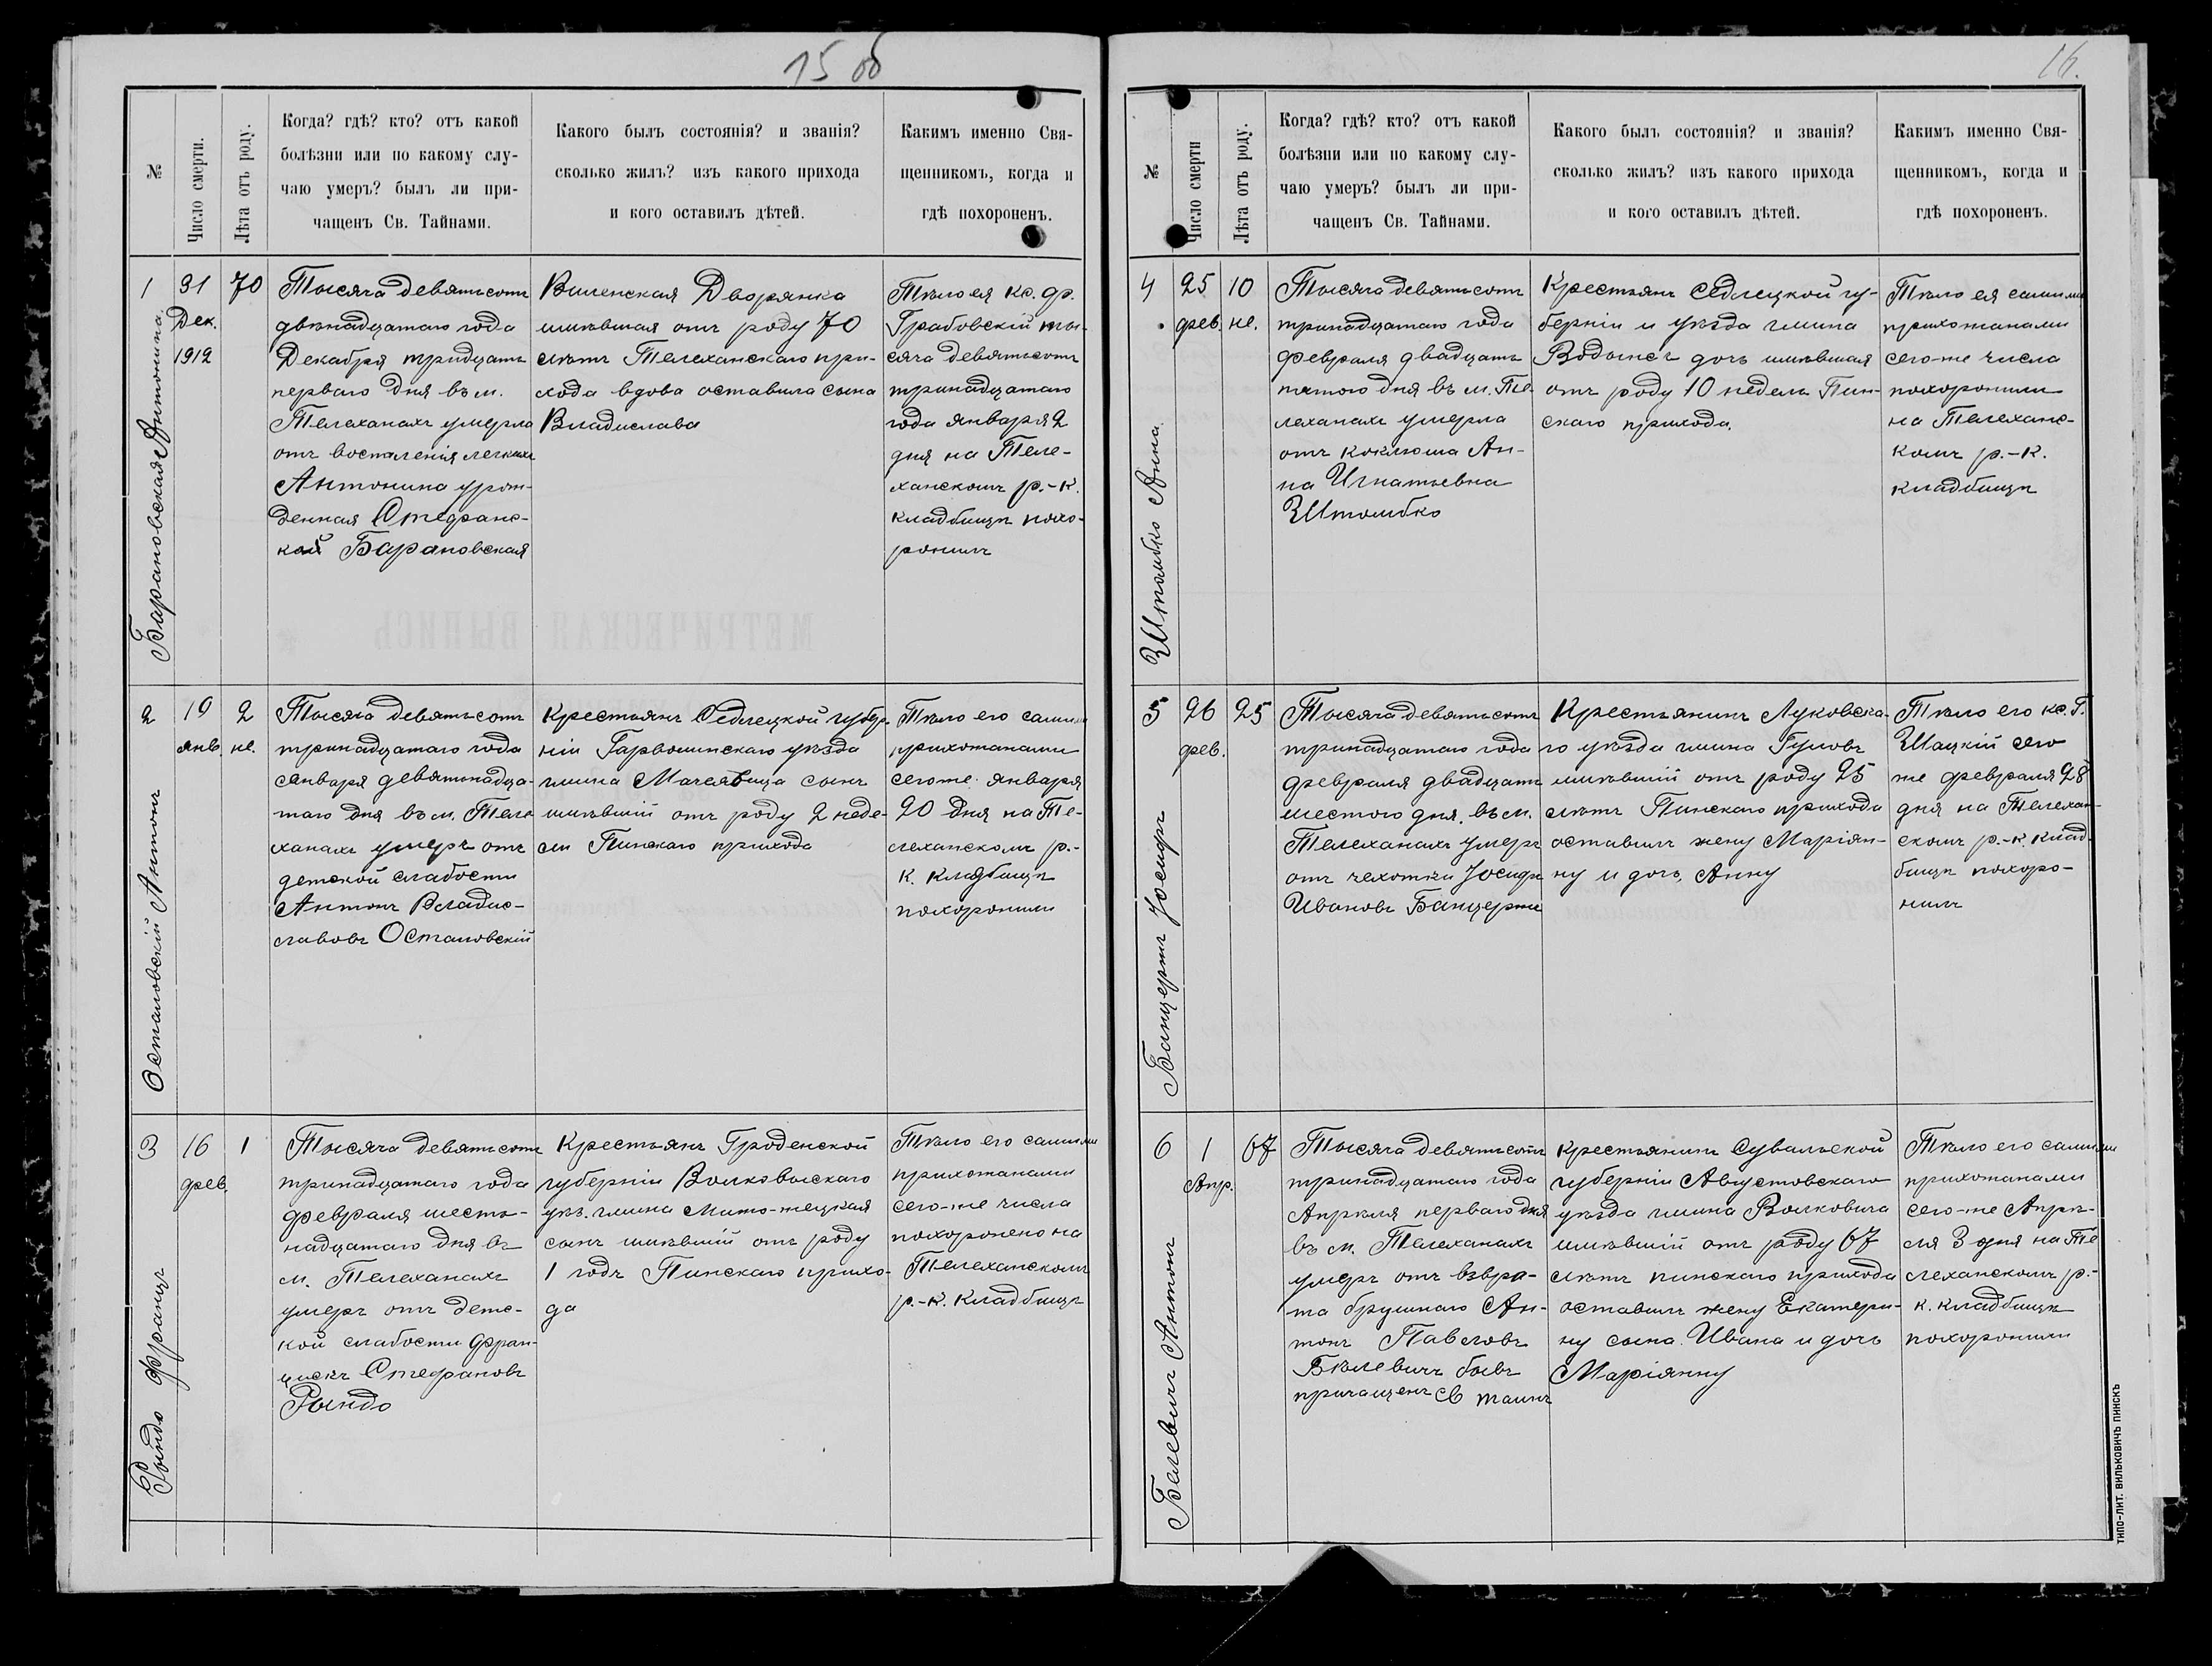 15 об
№
Число смерти.
Лѣта отъ роду.
Когда? гдѣ? кто? отъ какой
болѣзни или по какому слу-
чаю умеръ? былъ ли при-
чащенъ Св. Тайнами.
Какого былъ состоянія? и званія?
сколько жилъ? изъ какого прихода
и кого оставилъ дѣтей.
Какимъ именно Свя-
щенникомъ, когда и
гдѣ похороненъ.
1
Барановская Антонина
31
Дек.
1912
70
Тысяча девятьсотъ
двѣнадцатаго года
Декабря тридцать
перваго дня въ м.
Телеханахъ умерла
отъ воспаленія легкихъ
Антонина урож-
денная Стефанс-
кая Барановская
Виленская Дворянка
имѣвшая отъ роду 70
лѣтъ Телеханскаго при-
хода вдова оставила сына
Владислава
Тѣло ея кс. Фр.
Грабовскій ты-
сяча девятьсотъ
тринадцатаго
года Января 2
дня на Теле-
ханскомъ р.-к.
кладбищѣ похо-
ронилъ
2
Осталовскій Антонъ
19
янв.
2
не.
Тысяча девятьсотъ
тринадцатаго года
января девятнадца-
таго дня въ м. Теле
ханахъ умеръ отъ
детской слабости
Антонъ Владис-
лавовъ Осталовскій
Крестьянъ Седлецкой губер-
ніи Гарволинскаго уѣзда
гмина Мачеявица сынъ
имѣвшій отъ роду 2 неде-
ли Пинскаго прихода
Тѣло его самими
прихожанами
сего-же января
20 дня на Те-
леханскомъ р.-
к. кладбищѣ
похоронили
3
Рындо Францъ
16
фев.
1
Тысяча девятьсотъ
тринадцатаго года
февраля шесть-
надцатаго дня въ
м. Телеханахъ
умеръ отъ детс-
кой слабости Фран-
цискъ Стефановъ
Рындо
Крестьянъ Гроденской
губерніи Волковыскаго
уѣз. гмина
сынъ имѣвшій отъ роду
1 годъ Пинскаго прихо-
да
Тѣло его самими
прихожанами
сего-же числа
похоронено на
Телеханскомъ
р.-к. кладбищѣ
16.
№
Число смерти
Лѣта отъ роду.
Когда? гдѣ? кто? отъ какой
болѣзни или по какому слу-
чаю умеръ? былъ ли при-
чащенъ Св. Тайнами.
Какого былъ состоянія? и званія?
сколько жилъ? изъ какого прихода
и кого оставилъ дѣтей.
Какимъ именно Свя-
щенникомъ, когда и
гдѣ похороненъ.
4
Штомбко Анна
25
фев.
10
не.
Тысяча девятьсотъ
тринадцатаго года
Февраля двадцать
пятого дня въ м. Те-
леханахъ умерла
отъ коклюша Ан-
на Игнатьевна
Штомбко
Крестьянъ Седлецкой гу-
берніи и уѣзда гмина
Водынсъ дочь имѣвшая
отъ роду 10 недель Пин-
скаго прихода.
Тѣло ея самими
прихожанами
сего-же числа
похоронили
на Телеханс-
комъ р.-к.
кладбищѣ
5
Банцержъ Іосифъ
26
фев.
25
Тысяча девятьсотъ
тринадцатаго года
февраля двадцать
шестого дня, въ м.
Телеханахъ умеръ
отъ чехотки Іосифъ
Ивановъ Банцержъ
Крестьянинъ Луковска-
го уѣзда гмина Гуловъ
имѣвшій отъ роду 25
лѣтъ Пинскаго прихода
оставилъ жену Маріян-
ну и дочь, Анну
Тѣло его кс. Г.
Шацкій сего
же февраля 28
дня на Телехан-
скомъ р.-к. клад-
бищѣ похоро-
нилъ
6
Балевичъ Антонъ
1
Апр.
67
Тысяча девятьсотъ
тринадцатаго года
Апрѣля перваго дня
въ м. Телеханахъ
умеръ отъ
брушнаго Ан-
тонъ Павловъ
Бѣлевичъ бывъ
причащенъ Св таинъ
Крестьянинъ Сувальской
губерніи Августовскаго
уѣзда гмина Волковича
имѣвшій отъ роду 67
лѣтъ пинскаго прихода
оставилъ жену Екатери-
ну сына Ивана и дочь
Маріянну
Тѣло его самими
прихожанами
сего-же Апрѣ-
ля 3 дня на Те
леханскомъ р.-
к. кладбищѣ
похоронили
ТИПО-ЛИТ. ВИЛЬКОВИЧЪ ПИНСКЪ